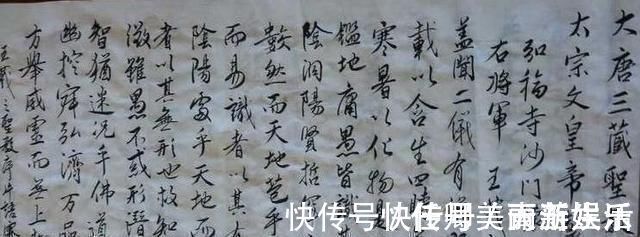 大唐三藏聖
太宗文皇帝
弘福寺沙門
右將軍王
盖聞二儀有
載以含生四時
寒暑以化物
鑑地庸愚皆識
陰洞陽賢哲
數然而天地苞乎
而易識者以其有
陰陽處乎天地而
者以其無形也故知
徵雖愚不或形潛
智猶迷况乎佛道
幽控寂弘濟万品
方舉威靈而無上
王羲之聖教序
快传号